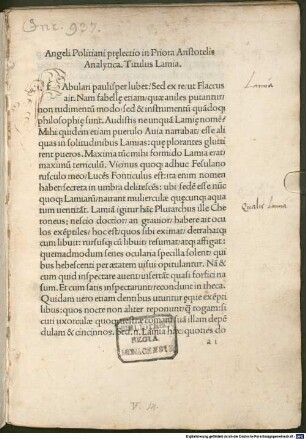 Inc. 937.
Angeli Politiani prelectio in Priora Aristotelis
Analytica. Titulus Lamia.
Lamia
Abulari paulisper lubet/ Sed ex re/ut Flaccus
ait. Nam fabellę etiam/quę aniles putantur/
non rudimentū modo/sed & instrumentū quādoq̨
philosophię sunt. Audistis ne unquā Lamię nomē?
Mihi quidem etiam puerulo Auia narrabat/ esse ali
quas in solitudinibus Lamias: quę plorantes glutirēt
pueros. Maxima tūc mihi formido Lamia erat/
maximū terriculū. Vicinus quoq̨ adhuc Fesulano
rusculo meo/Lucēs Fonticulus est/ita enim nomen
habet/secreta in umbra delitescēs: ubi sedē esse nūc
quoq̨ Lamiarū/narrant mulierculę quęcunq̨ aqua
tum uentitāt. Lamiā igitur hāc Plutarchus ille Che
Qualis Lamia
roneus/ nescio doctior/ an grauior/ habere ait ocu
los exēptiles/ hoc est/quos sibi eximat/ detrahatq̨
cum libuit: rursusq̨ cū libuit/ resumat/atq̨ affigat:
quemadmodum senes ocularia specilla solent/ qui
bus hebescenti per ętatem uisui opitulantur. Nā &
cum quid inspectare auent/insertāt quasi forfici na
sum. Et cum satis inspectarunt/recondunt in theca.
Quidam uero etiam dentibus utuntur ęque exēpti
libus: quos nocte non aliter reponunt q̄ togam: si
cuti uxorculę quoq̨ uestrę comam suā illam depē
dulam & cincinnos. Sed .n. Lamia hęc quotiēs do
BIBLIOTHECA
REGIA
MONACENSIS
a i